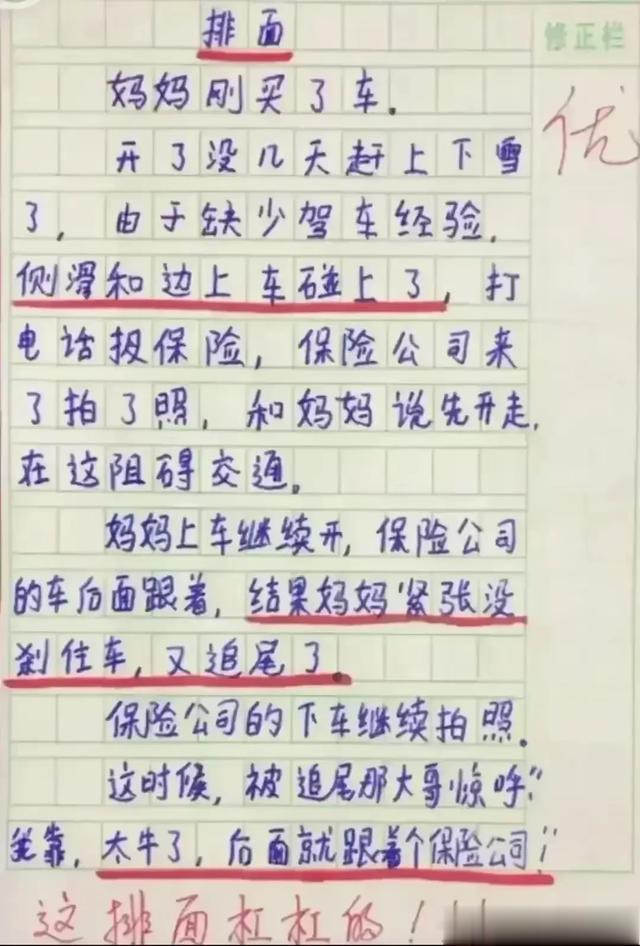 修正栏
排面
优
妈妈刚买了车.
开了没几天赶上下雪
了,由于缺少驾车经验,
侧滑和边上车碰上了,打
电话报保险,保险公司来
了拍了照,和妈妈说先开走,
在这阻碍交通。
妈妈上车继续开,保险公司
的车后面跟着,结果妈妈紧张没
刹住车,又追尾了。
保险公司的下车继续拍照.
这时候,被追尾那大哥惊呼:“
靠,太牛了,后面就跟着个保险公司!”
这排面杠杠的!!!